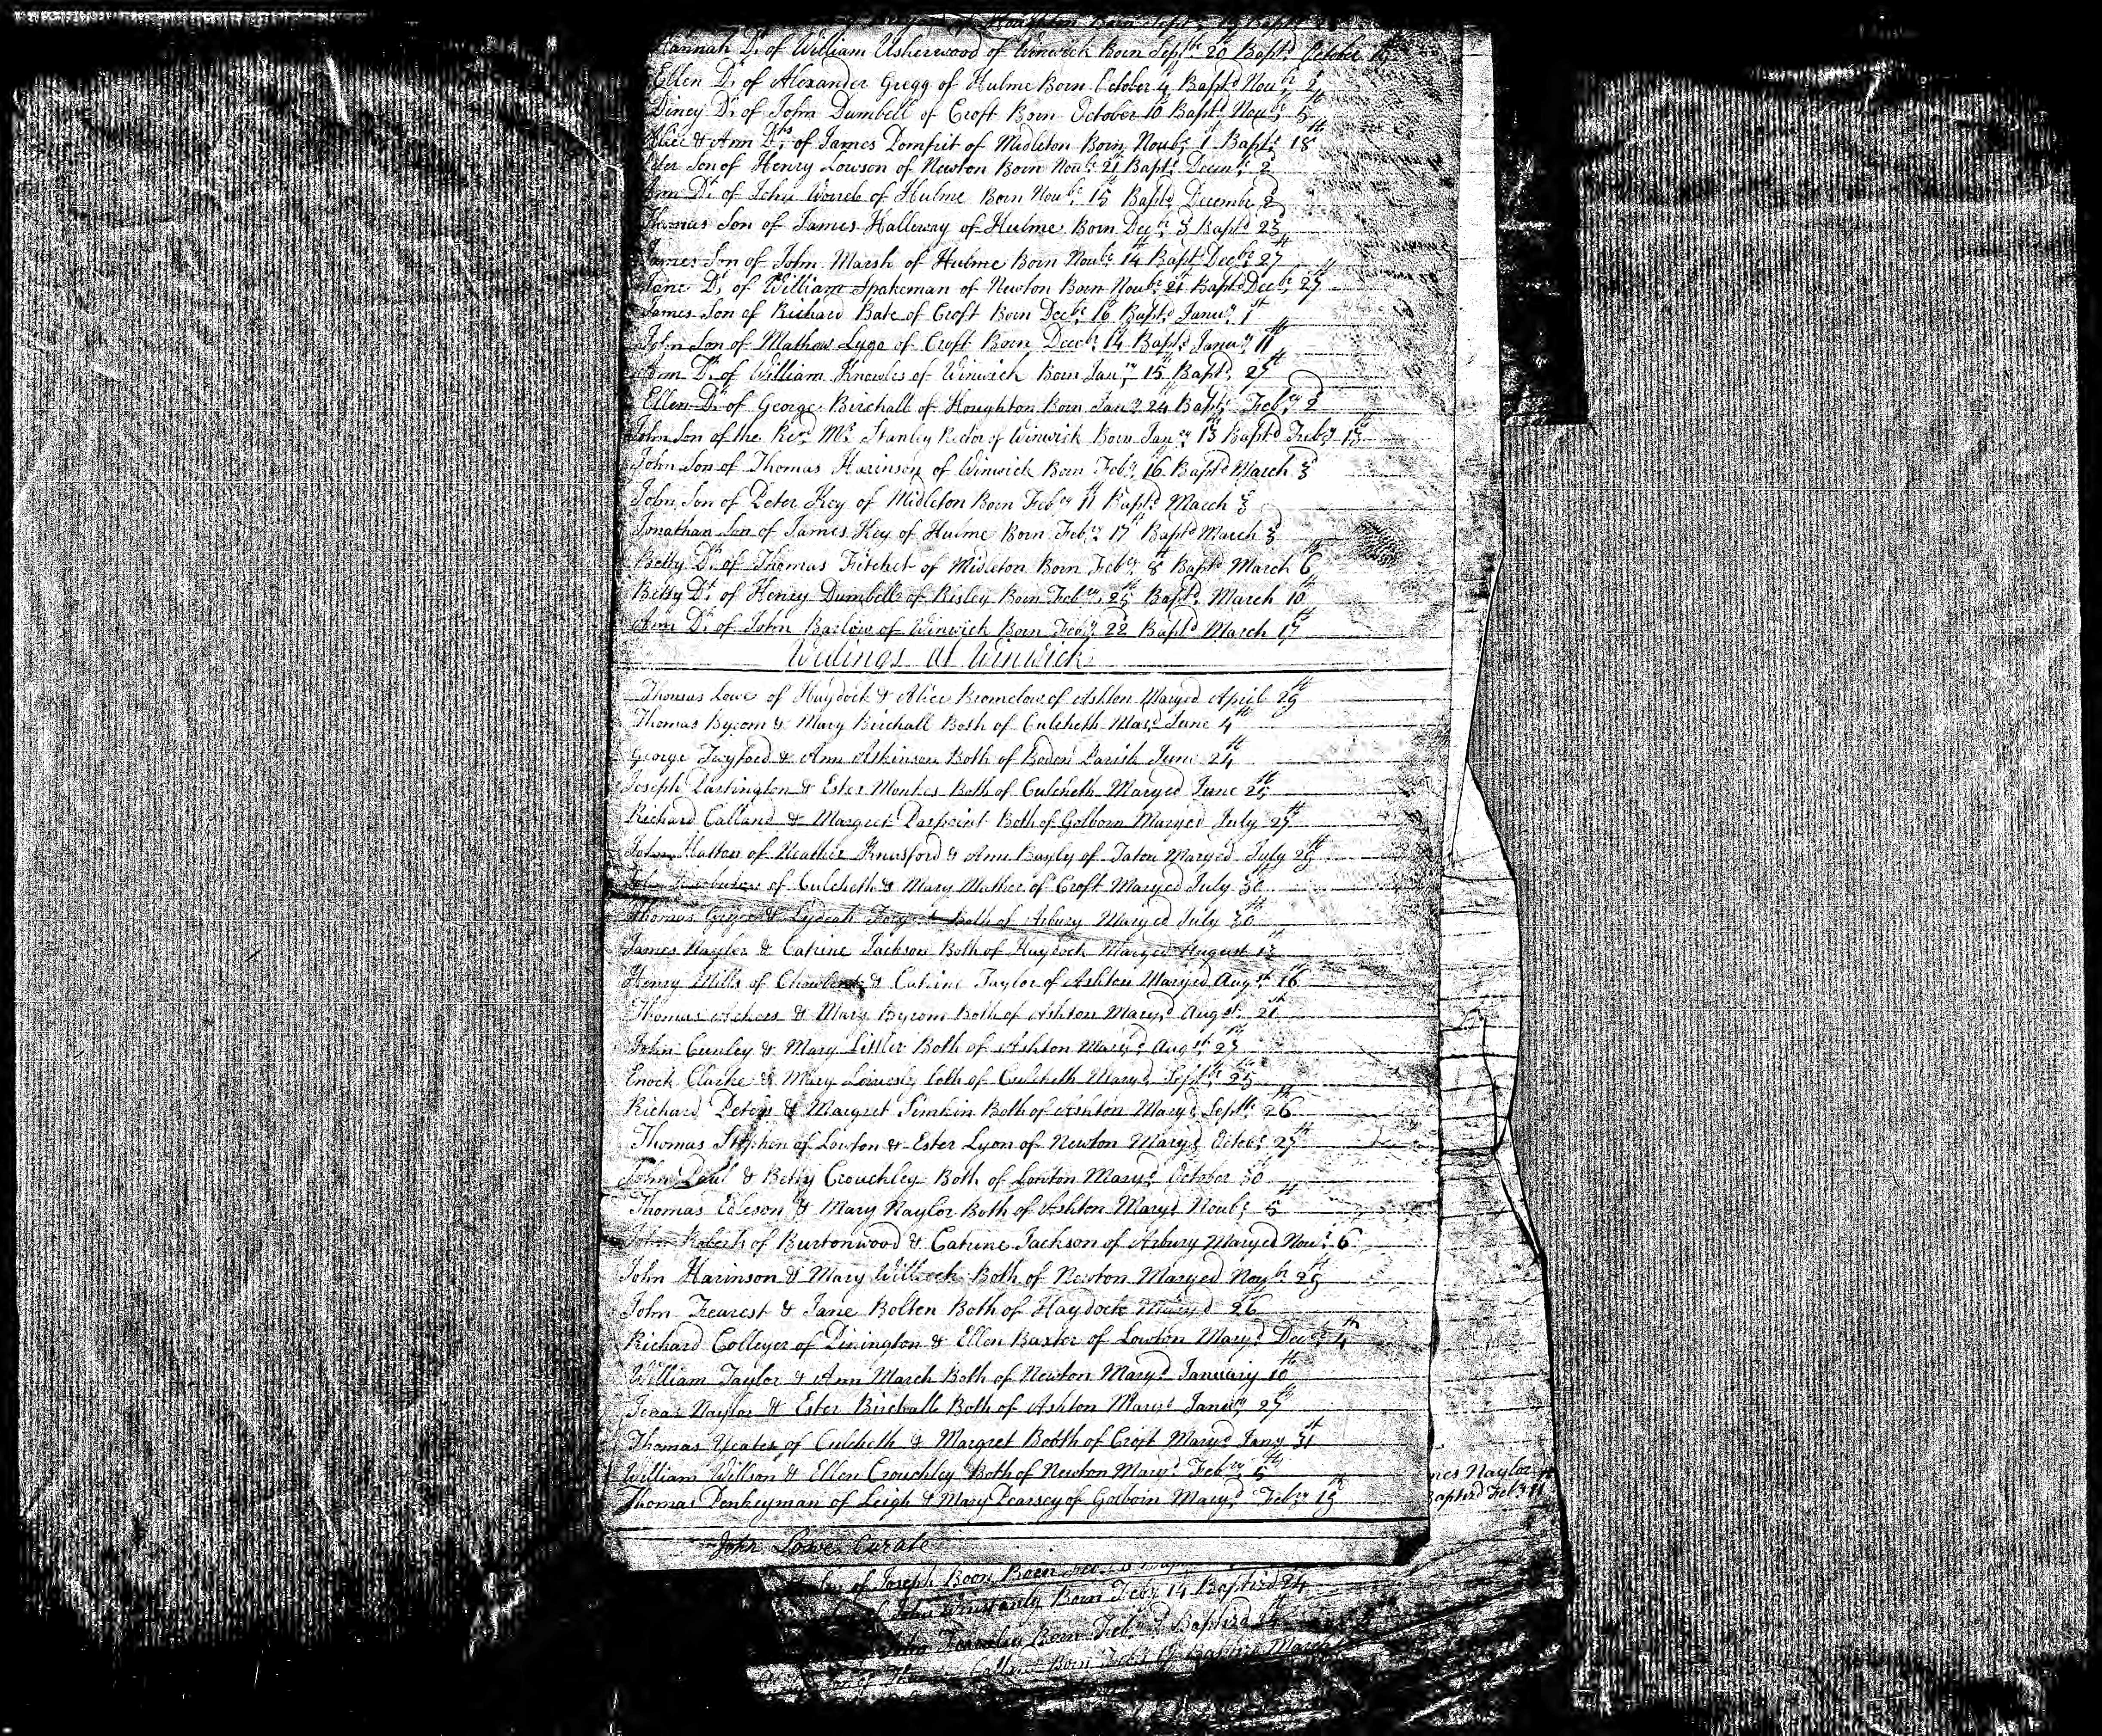 of Houghton Born Sept: 19 Bapt:
Hannah Dr of William Usherwood of Winwick Born Septbr 20 Bapt:d October
Ellen Dr of Alexander Gregg of Hulme Born October 4 Bapt:d Noubr 2
Diney Dr of John Dumbell of Croft Born October 10 Bapt:d Noubr 5th
Alice & Ann Drs of James Pomfrit of Midleton Born Noubr 1st Bapt:d 18th
Peter Son of Henry Lowson of Newton Born Noubr 21 Bapt:d Decmbr 2d
Ann Dr of John of Hulme Born Noubr 15 Bapt:d Decembr 2d
Thomas Son of James Halleway of Hulme Born Decr 3 Bapt:d 23d
James Son of John Marsh of Hulme Born Noubr 14th Bapt:d Decbr 27th
Jane Dr of William Spakeman of Newton Born Noubr 21st Bapt:d Decbr 27th
James Son of Richard Bate of Croft Born Decbr 16 Bapt:d Janury 1st
John Son of Mathew Lyge of Croft Born Decbr 14 Bapt:d Janury 11th
Ann Dr of William Knowles of Winwick Born Janry 15 Bapt:d 27th
Ellen Dr of George Birchall of Houghton Born Jany 24 Bapt:d Febry 2d
John Son of the Revd Mr Stanley Rector of Winwick Born Janry 13 Bapt:d Feby 13th
John Son of Thomas Harinson of Winwick Born Feby 16 Bapt:d March 3d
John Son of Peter Key of Midleton Born Febry 11 Bapt:d March 3
Jonathan Son of James Key of Hulme Born Feby 17th Bapt:d March 3
Betty Dr of Thomas Fitchet of Midleton Born Feby 8th Bapt:d March 6th
Betty Dr of Henry Dumbell of Risley Born Febry 25th Bapt:d March 10th
Ann Dr of John Barlow of Winwick Born Feby 22 Bapt:d March 17th
Wedings at Winwick
Thomas Lowe of Haydock & Alice Bromelow of Ashton Maryed April 29th
Thomas Bycom & Mary Birchall Both of Culcheth Mary:d June 4th
George Twyford & Ann Askinson Both of Boden Parish June 24th
Joseph Partington & Ester Monkes Both of Culcheth Maryed June 25th
Richard Calland & Margret Parpoint Both of Golborn Maryed July 27th
John Hatton of Neather Knusford & Ann Bayly of Taton Maryed July 29th
John of Culcheth & Mary Mather of Croft Maryed July 30
Thomas & Lydeah Both of Arbury Maryed July 30th
James Naylor & Catrine Jackson Both of Haydock Maryed August 13th
Henry Mills of Chowbent & Catrine Taylor of Ashton Maryed Augst 16th
Thomas & Mary Bycom Both of Ashton Mary:d Augst 21st
John Cunley & Mary Litler Both of Ashton Mary:d Augst 27th
Enock Clarke & Mary both of Culcheth Mary:d Septbr 25th
Richard Peters & Margret Simkin Both of Ashton Mary:d Septbr 26th
Thomas Stephen of Lowton & Ester Lyon of Newton Mary:d Octobr 27th
John Paul & Betty Crouchley Both of Lowton Mary:d October 30
Thomas Edleson & Mary Naylor Both of Ashton Mary:d Noubr 5th
John Roberts of Burtonwood & Catrine Jackson of Arbury Maryed Nour 6
John Harinson & Mary Willcock Both of Newton Maryed Noubr 25th
John Fearest & Jane Bolten Both of Haydock Mary:d 26
Richard Colleyer of Pinington & Ellen Baxter of Lowton Mary:d Decbr 4th
William Taylor & Ann March Both of Newton Mary:d January 10th
Jonas Naylor & Ester Birchall Both of Ashton Mary:d Janury 27th
Thomas Yeates of Culcheth & Margret Booth of Croft Mary:d Jany 31st
William Willson & Ellen Crouchley Both of Newton Mary:d Febry 5th
Thomas Penkeyman of Leigh & Mary Pearsey of Golborn Mary:d Feby 19th
John Lowe Curate
Naylor
Baptizd Feb
of Joseph Boon Born
Born Feby 14 Baptizd 24
Born Feb Baptizd 24
Born Baptizd March